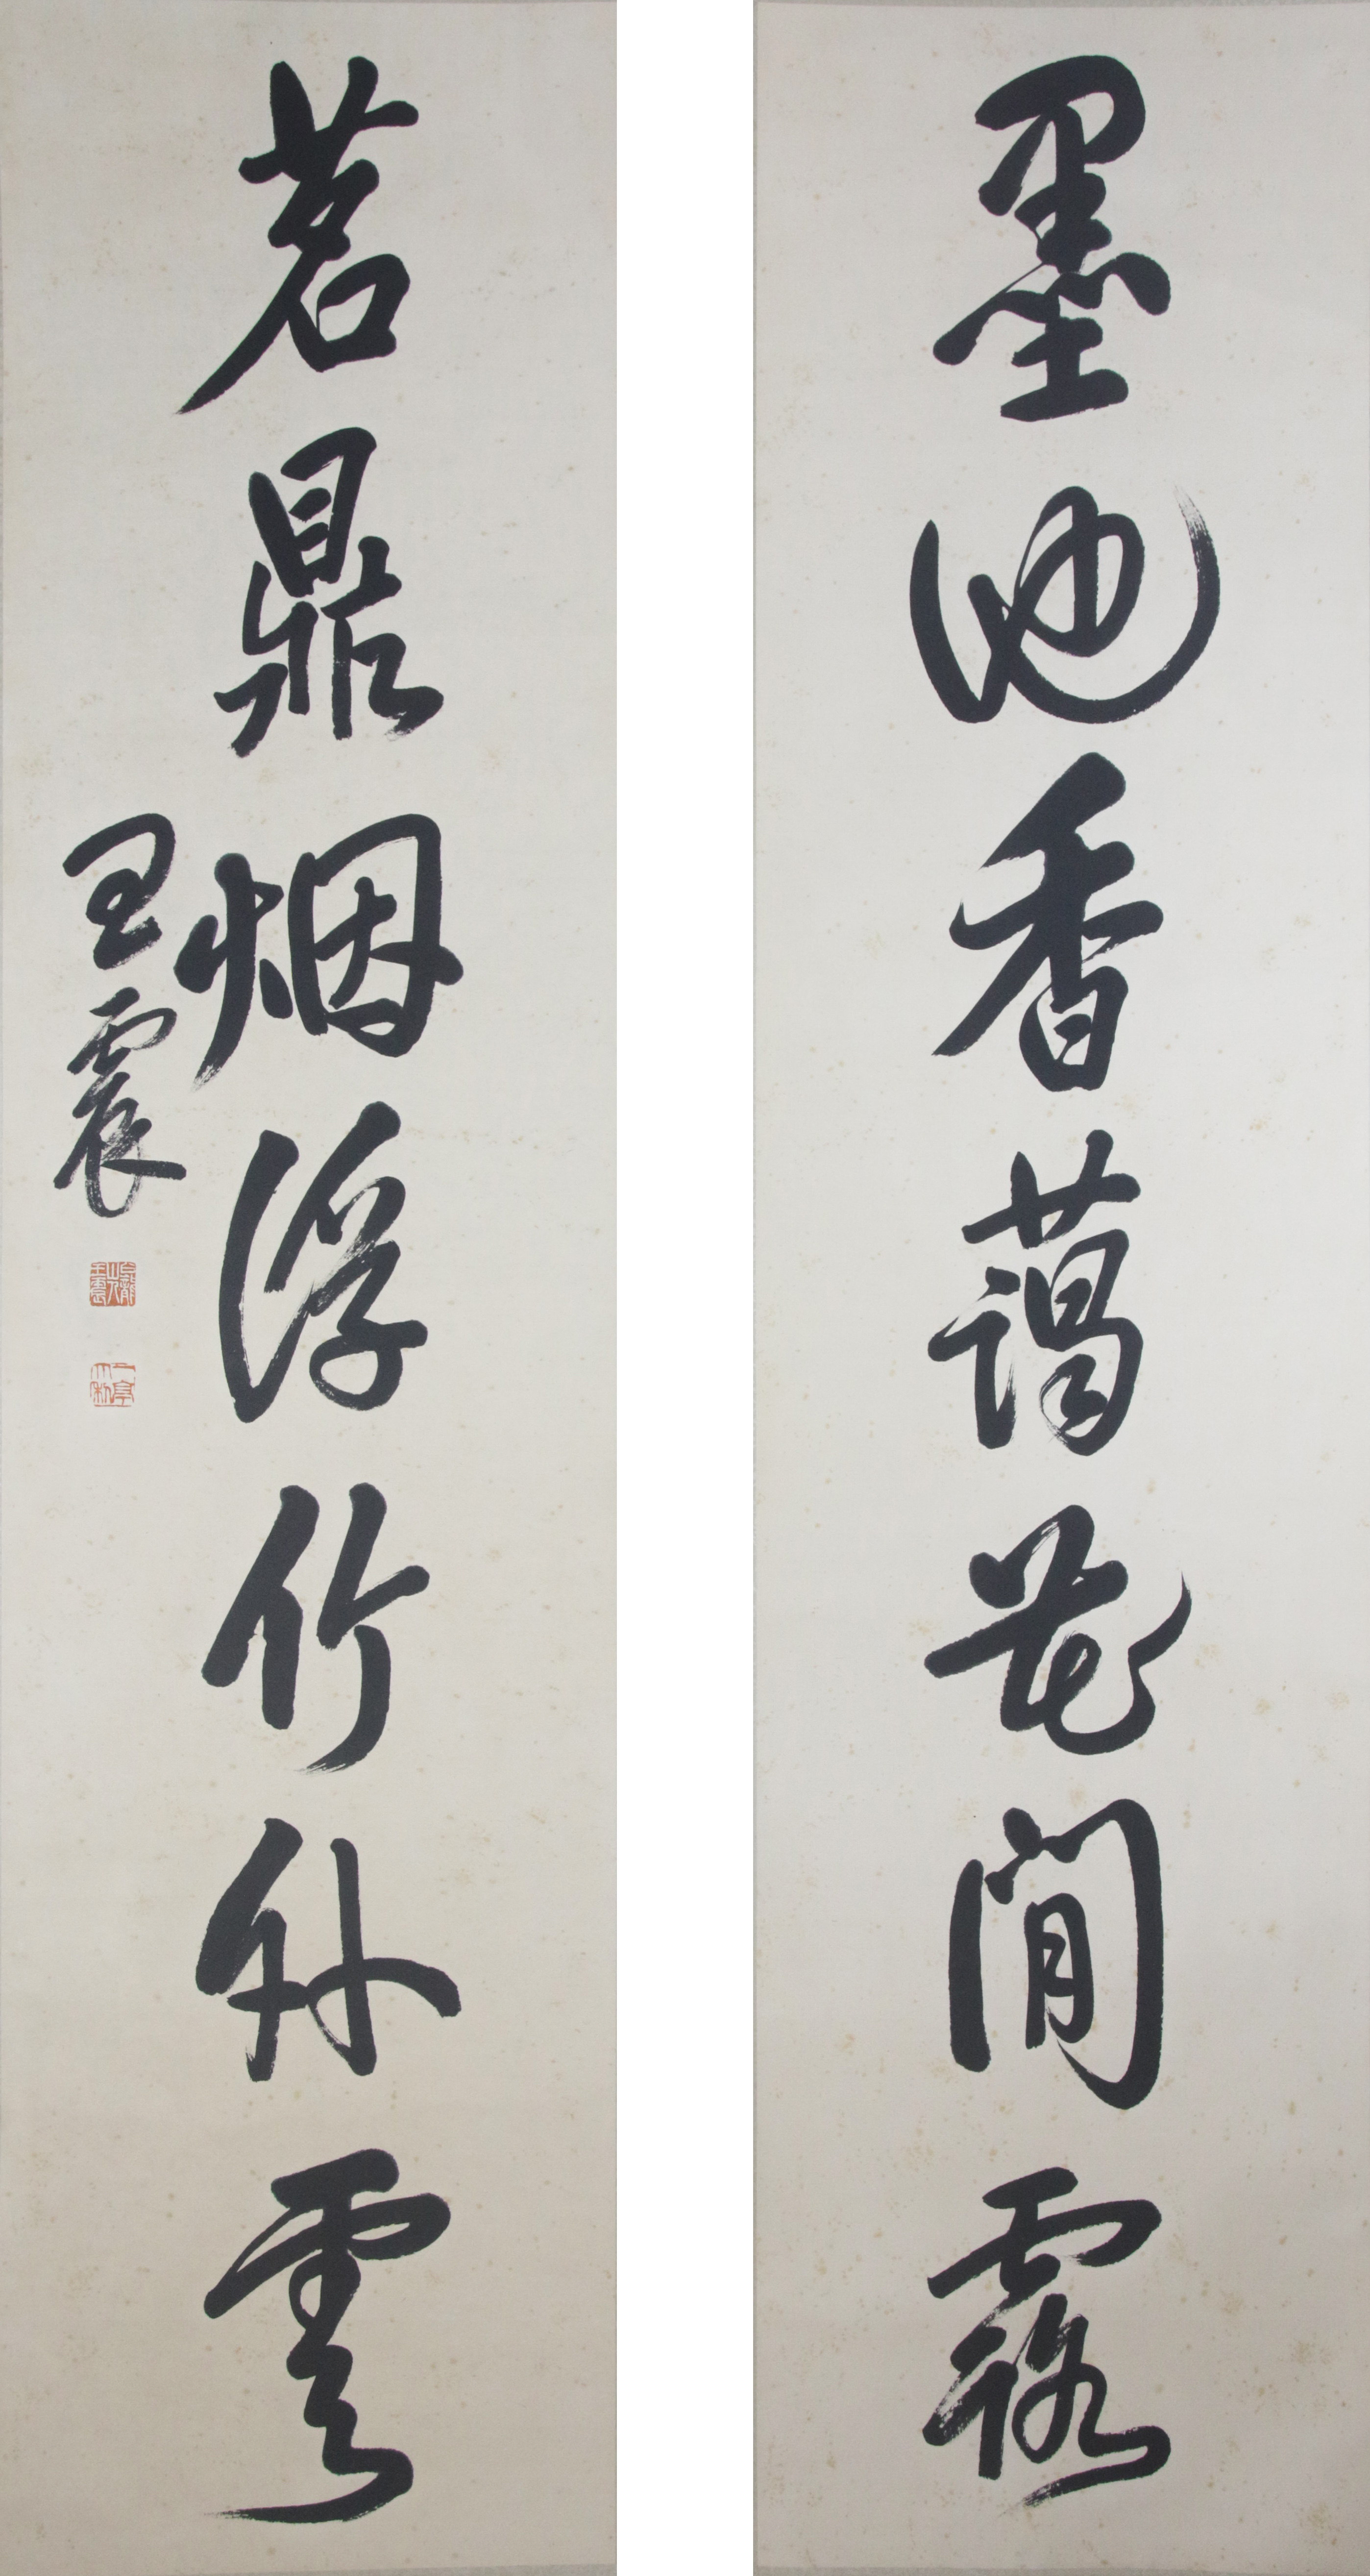 墨池香藹花間露
茗鼎烟浮竹外雲
王震
一亭